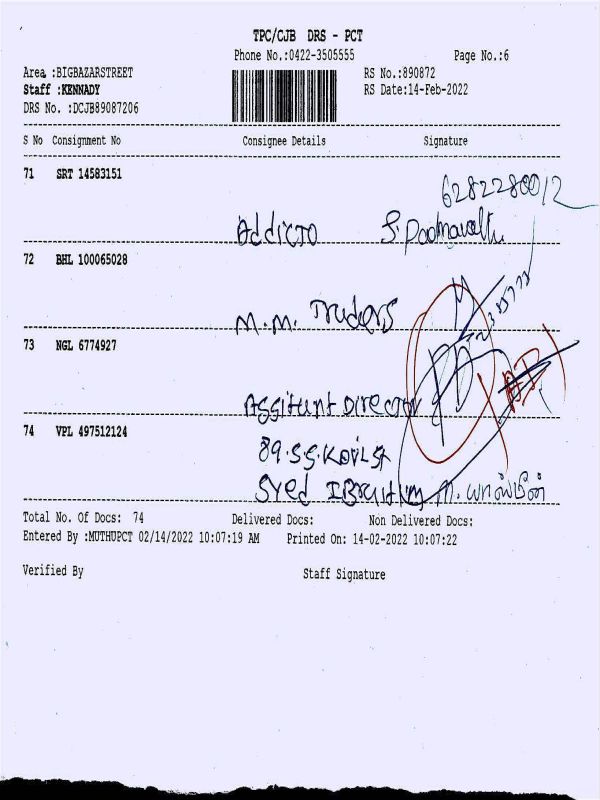 TPC/CJB DRS - PCT
Phone No.:0422-3505555 Page No.:6
Area :BIGBAZARSTREET RS No.:890872
Staff :KENNADY RS Date:14-Feb-2022
DRS No. :DCJB89087206
S No Consignment No Consignee Details Signature
71 SRT 14583151
6282280012
Addicto S. Padmavathi
72 BHL 100065028
M.M. Truders
73 NGL 6774927
Assitunt Director
74 VPL 497512124
89.S.S.KOVIL St
Syed IBruhim M. யாஸ்மீன்
Total No. Of Docs: 74 Delivered Docs: Non Delivered Docs:
Entered By :MUTHUPCT 02/14/2022 10:07:19 AM Printed On: 14-02-2022 10:07:22
Verified By Staff Signature